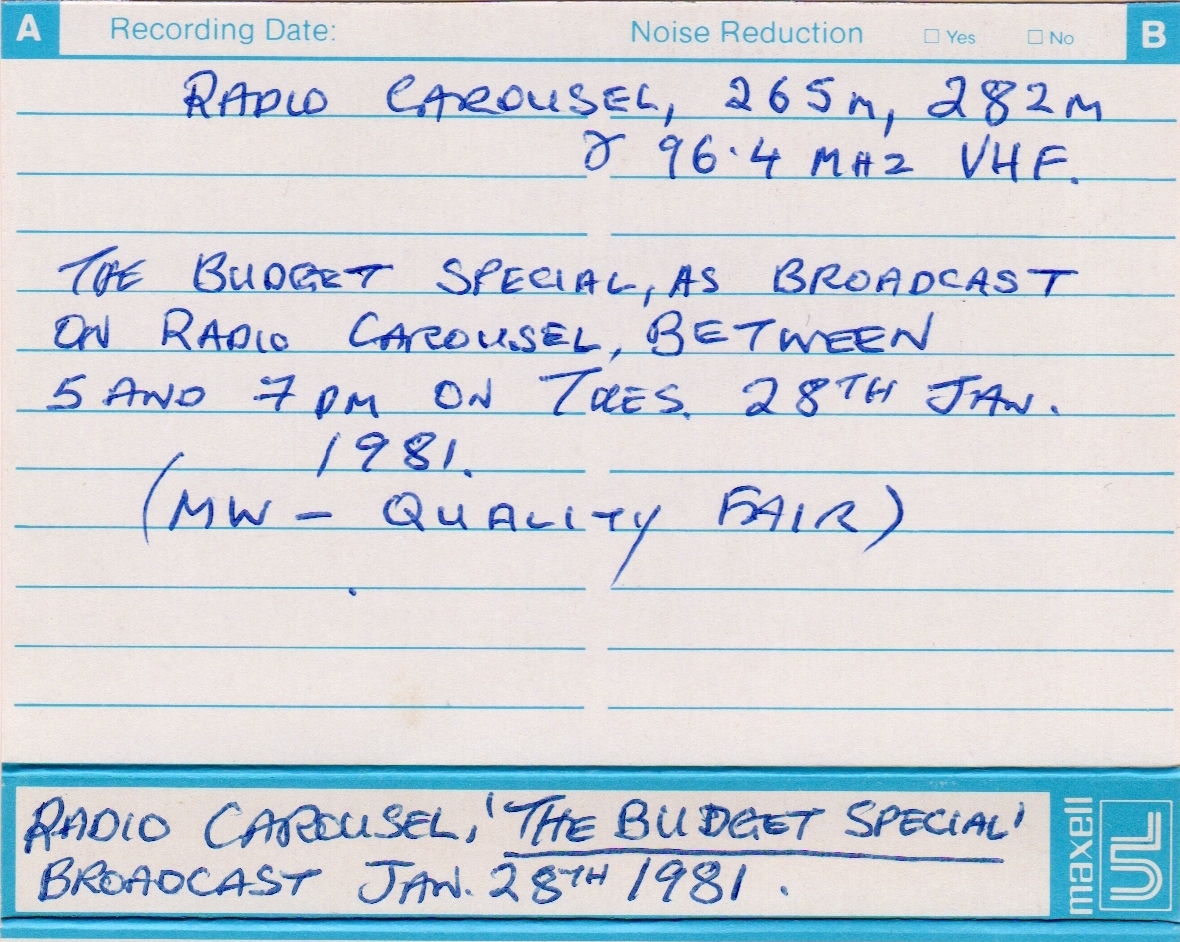 A Recording Date: Noise Reduction □ Yes □ No B
RADIO CAROUSEL, 265M, 282M
& 96.4 MHZ VHF.
THE BUDGET SPECIAL, AS BROADCAST
ON RADIO CAROUSEL, BETWEEN
5 AND 7 PM ON TUES. 28TH JAN.
1981.
(MW – QUALITY FAIR)
RADIO CAROUSEL, 'THE BUDGET SPECIAL'
BROADCAST JAN. 28TH 1981.
maxell UL